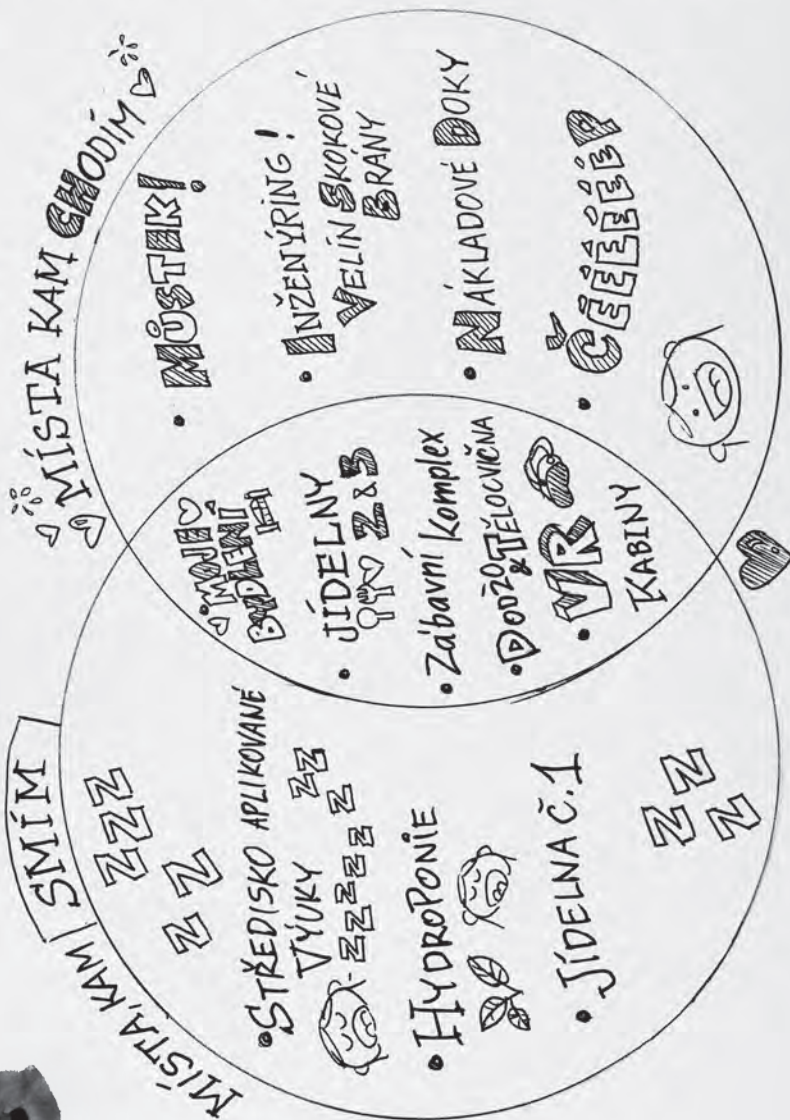 MÍSTA, KAM SMÍM
ZZZ
ZZ
• STŘEDISKO APLIKOVANÉ
VÝUKY ZZ
ZZZZZZZ
• HYDROPONIE
• JÍDELNA Č.1
ZZ
ZZ
• MOJE
BYDLENÍ
• JÍDELNY
2 & 3
• Zábavní komplex
• DODŽO
& TĚLOCVIČNA
• VR
KABINY
MÍSTA KAM CHODÍM
• MŮSTEK!
• INŽENÝRING!
VELÍN SKOKOVÉ
BRÁNY
• NÁKLADOVÉ DOKY
• ČÉÉÉÉÉÉP